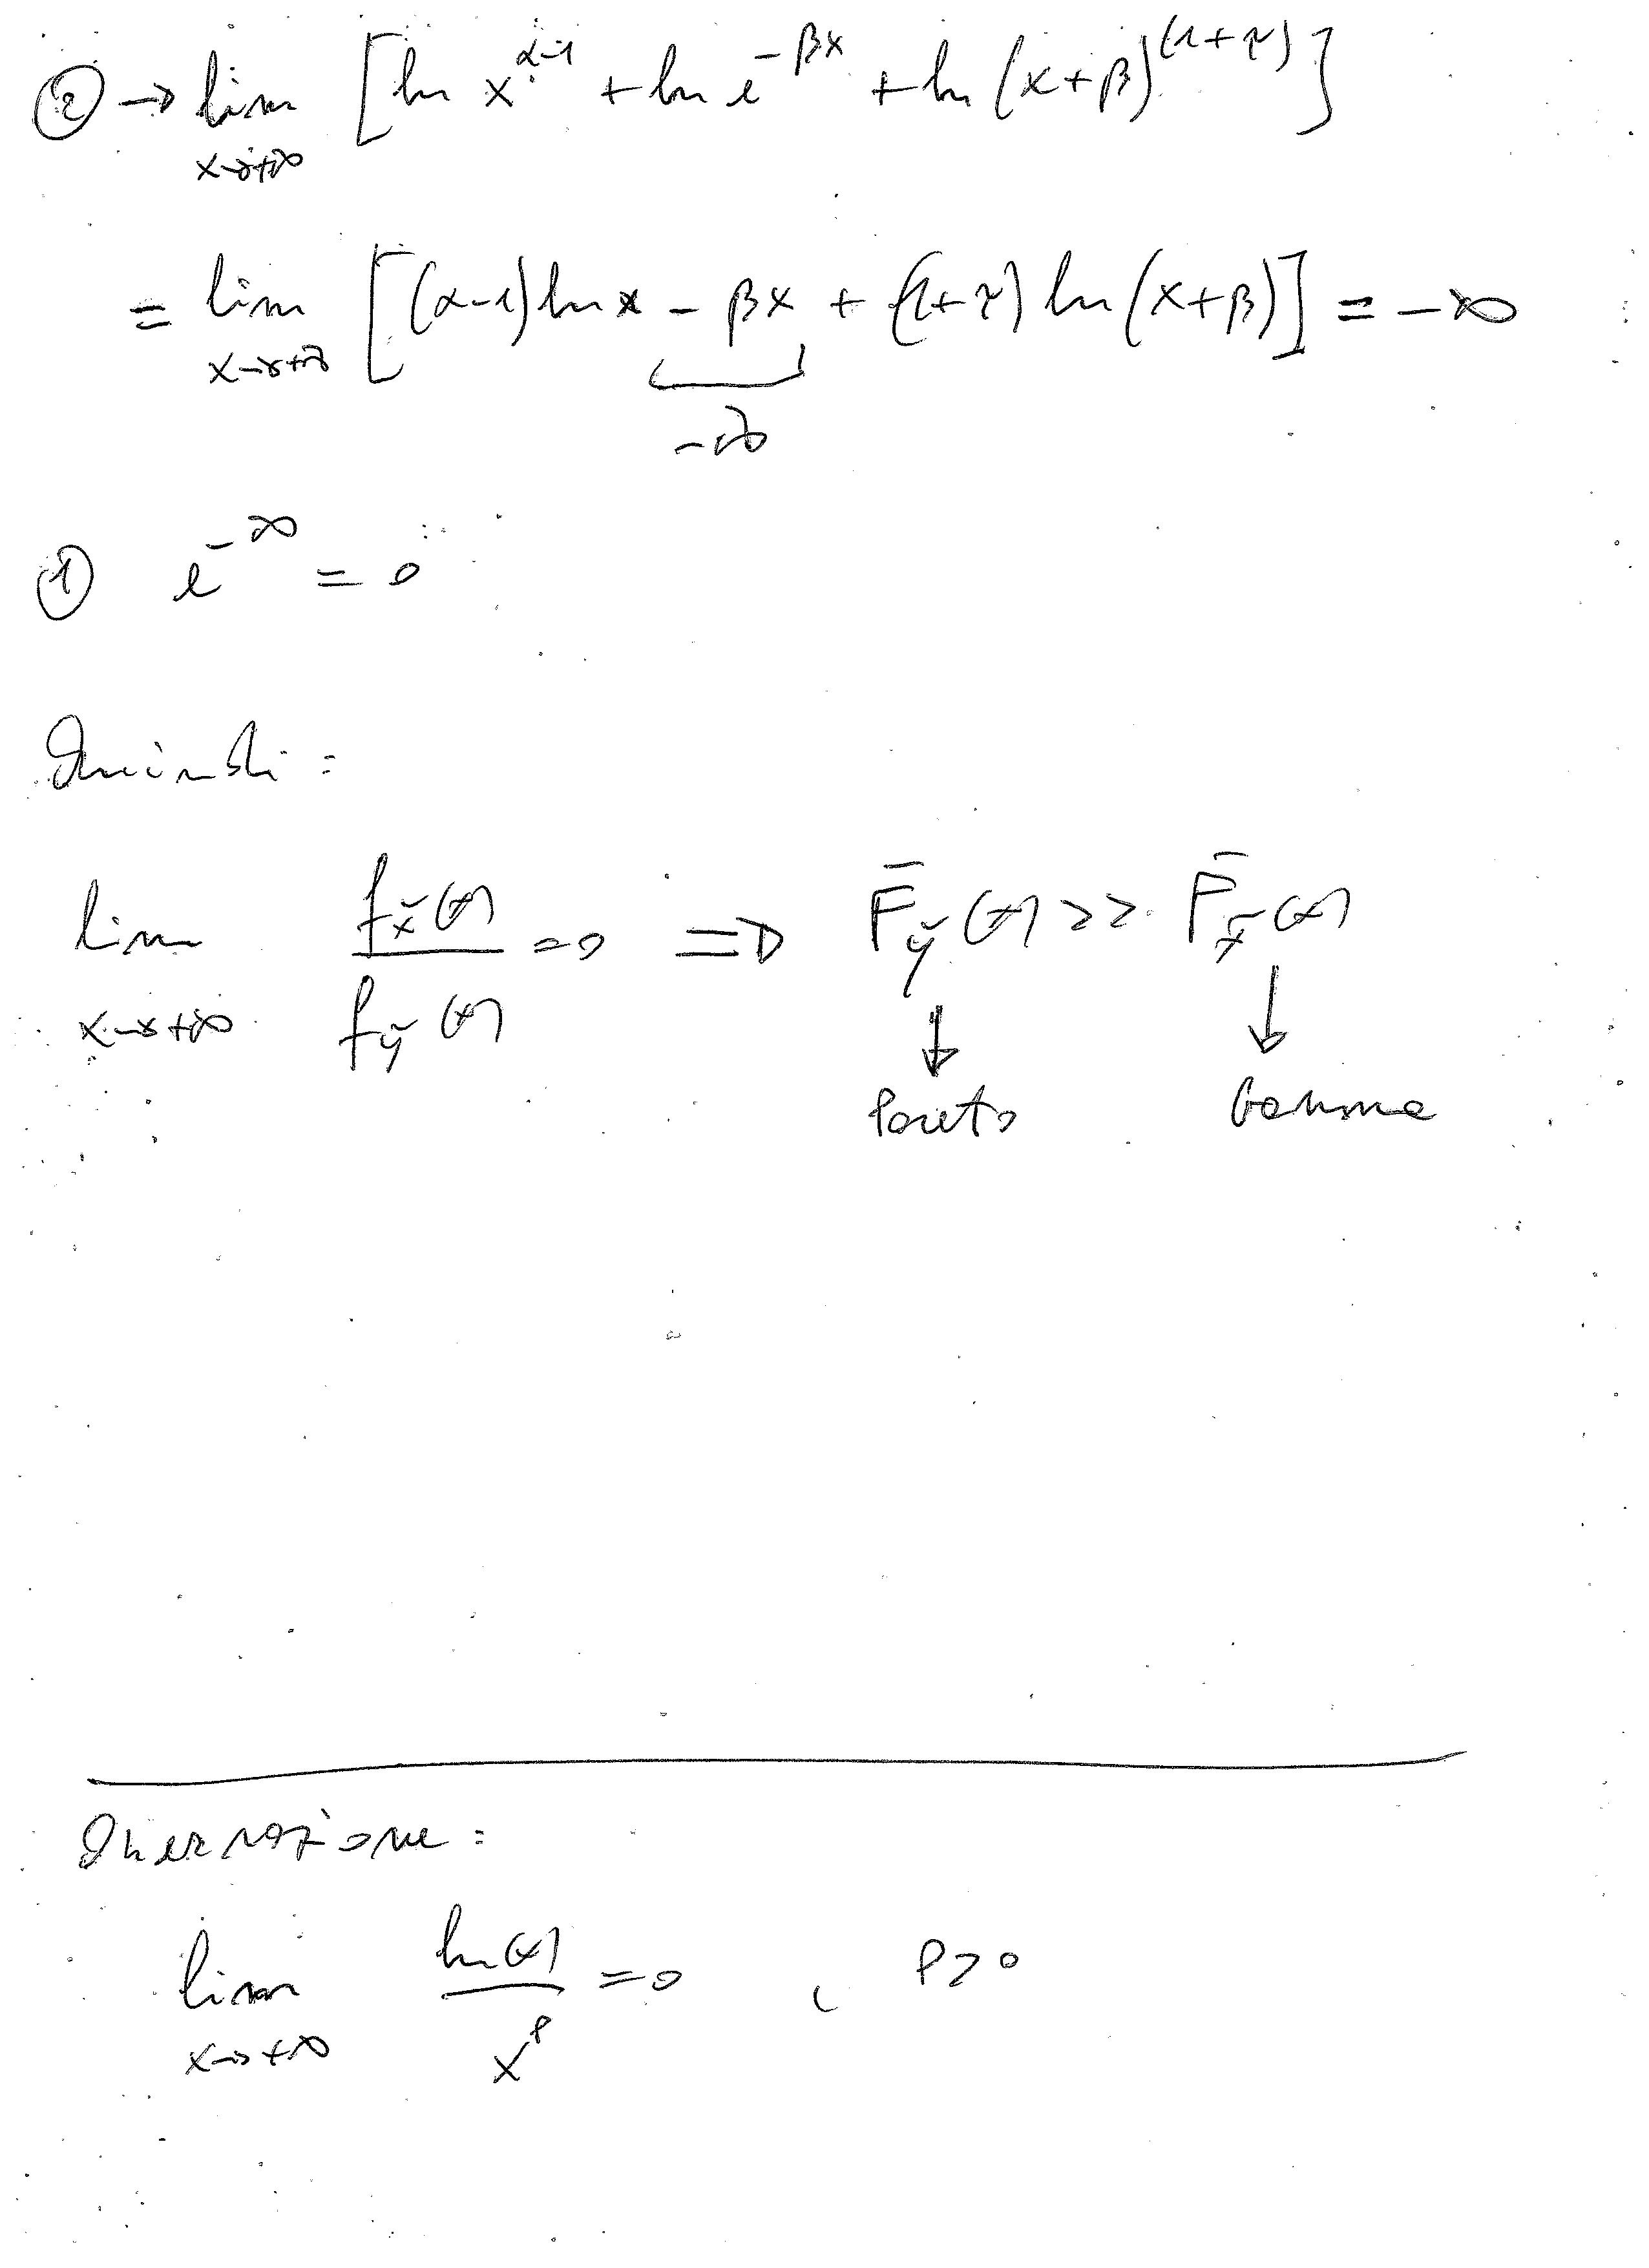 ② → lim [ln x^(α-1) + ln e^(-βx) + ln (x+β)^(1+τ)]
x→+∞
= lim [(α-1) ln x - βx + (1+τ) ln (x+β)] = -∞
x→+∞
-∞
① e^(-∞) = 0
Quindi:
lim f_x̃(x) / f_ỹ(x) = 0 ⇒ F̄_ỹ(x) >> F̄_x̃(x)
x→+∞
↓ ↓
Pareto Gamma
Osservazione:
lim ln(x) / x^p = 0 , p>0
x→+∞